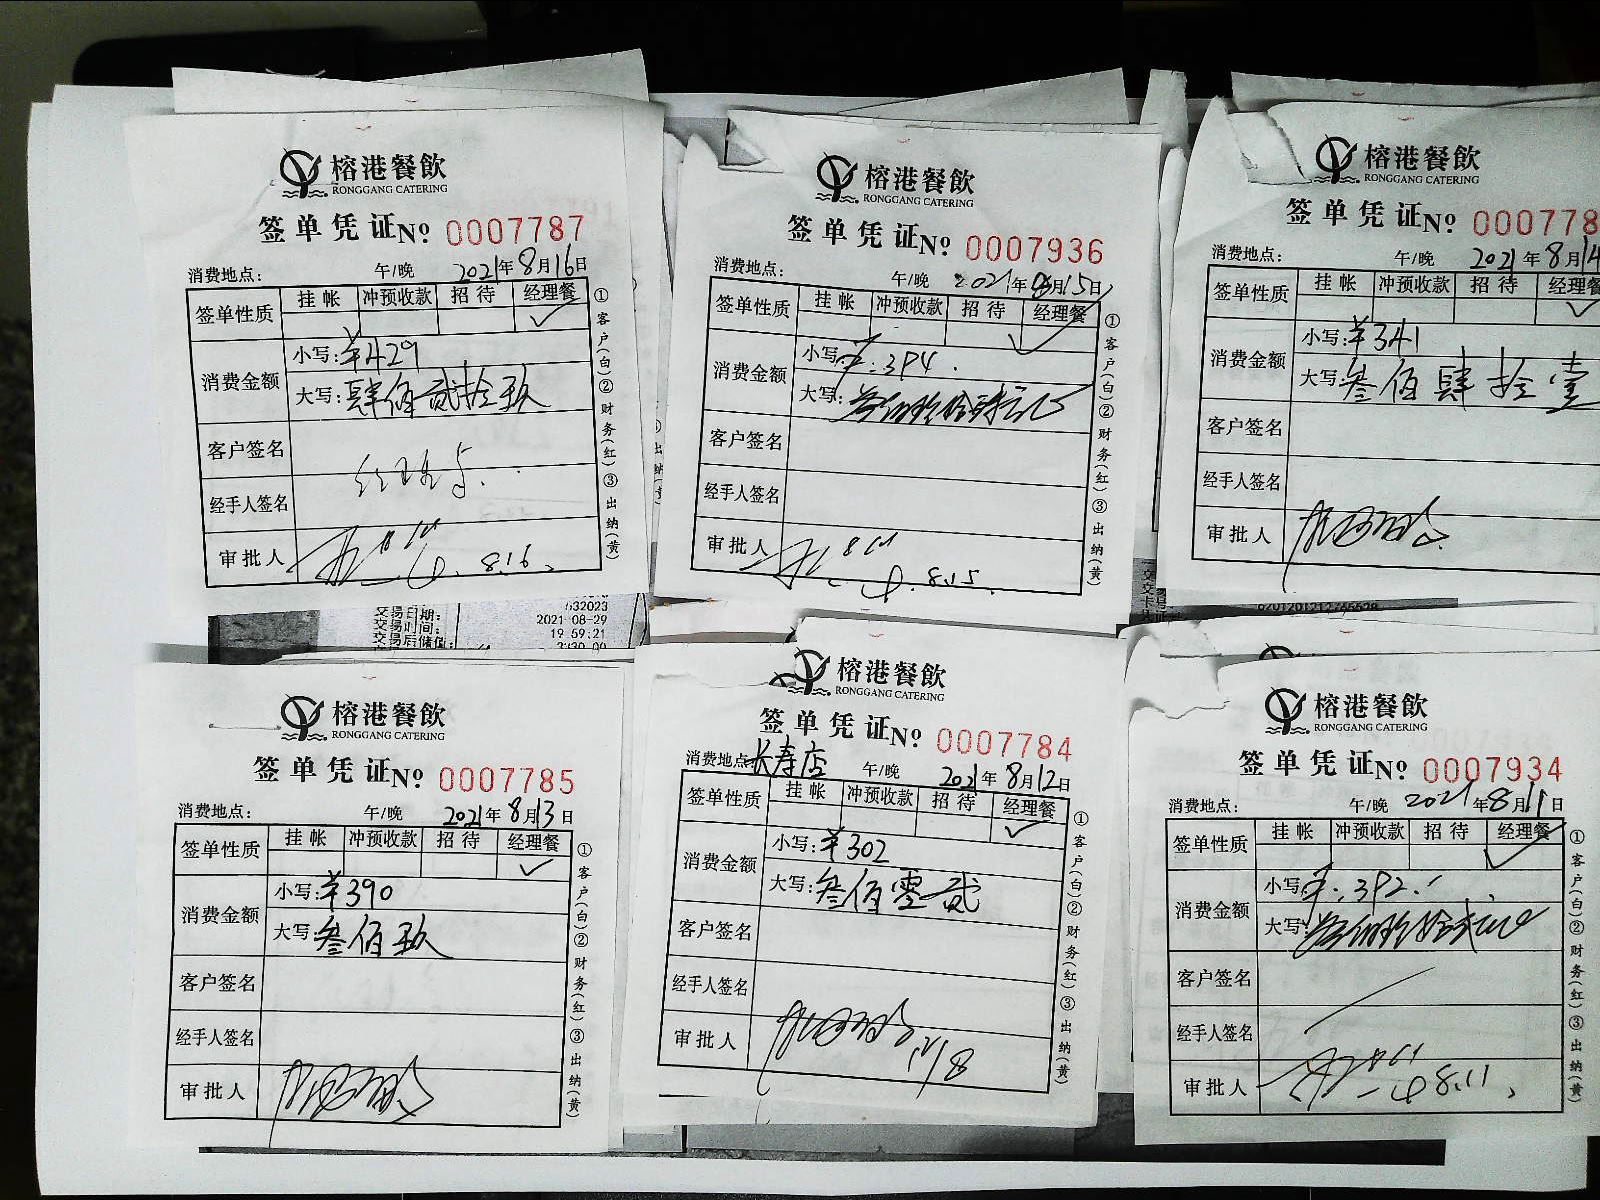 榕港餐飲
RONGGANG CATERING
签单凭证 No 0007787
消费地点： 午/晚 2021年8月16日
签单性质 挂帐 冲预收款 招待 经理餐
✓
消费金额 小写：¥429
大写：肆佰贰拾玖
客户签名
经手人签名
审批人 8.16
①客户(白)②财务(红)③出纳(黄)
榕港餐飲
RONGGANG CATERING
签单凭证 No 0007936
消费地点： 午/晚 2021年8月15日
签单性质 挂帐 冲预收款 招待 经理餐
✓
消费金额 小写：¥:394.
大写：
客户签名
经手人签名
审批人 8.15.
①客户(白)②财务(红)③出纳(黄)
榕港餐飲
RONGGANG CATERING
签单凭证 No 000778
消费地点： 午/晚 2021年8月14
签单性质 挂帐 冲预收款 招待 经理餐
✓
消费金额 小写：¥341
大写：叁佰肆拾壹
客户签名
经手人签名
审批人
632023
交易日期： 2021-08-29
交易时间： 19:59:21
交易后储值：
榕港餐飲
RONGGANG CATERING
签单凭证 No 0007785
消费地点： 午/晚 2021年8月13日
签单性质 挂帐 冲预收款 招待 经理餐
✓
消费金额 小写：¥390
大写：叁佰玖
客户签名
经手人签名
审批人
①客户(白)②财务(红)③出纳(黄)
榕港餐飲
RONGGANG CATERING
签单凭证 No 0007784
消费地点 长寿店 午/晚 2021年8月12日
签单性质 挂帐 冲预收款 招待 经理餐
✓
消费金额 小写：¥302
大写：叁佰零贰
客户签名
经手人签名
审批人 12/8
①客户(白)②财务(红)③出纳(黄)
榕港餐飲
RONGGANG CATERING
签单凭证 No 0007934
消费地点： 午/晚 2021年8月11日
签单性质 挂帐 冲预收款 招待 经理餐
✓
消费金额 小写：¥:392.
大写：
客户签名
经手人签名
审批人 8.11
①客户(白)②财务(红)③出纳(黄)